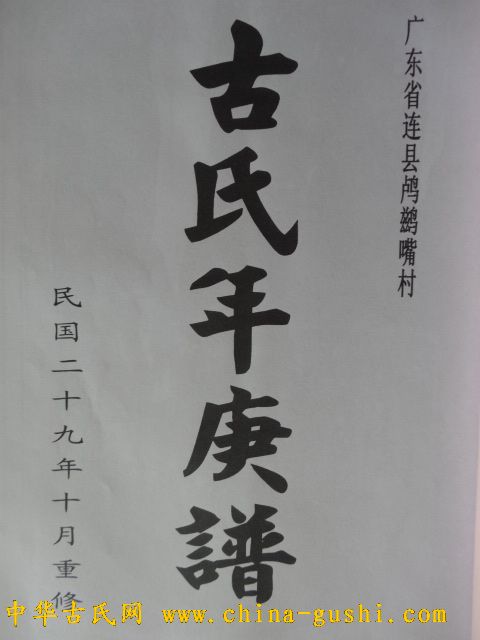 广东省连县鸬鹚嘴村
古氏年庚譜
民国二十九年十月重修
中华古氏网 www.china-gushi.com